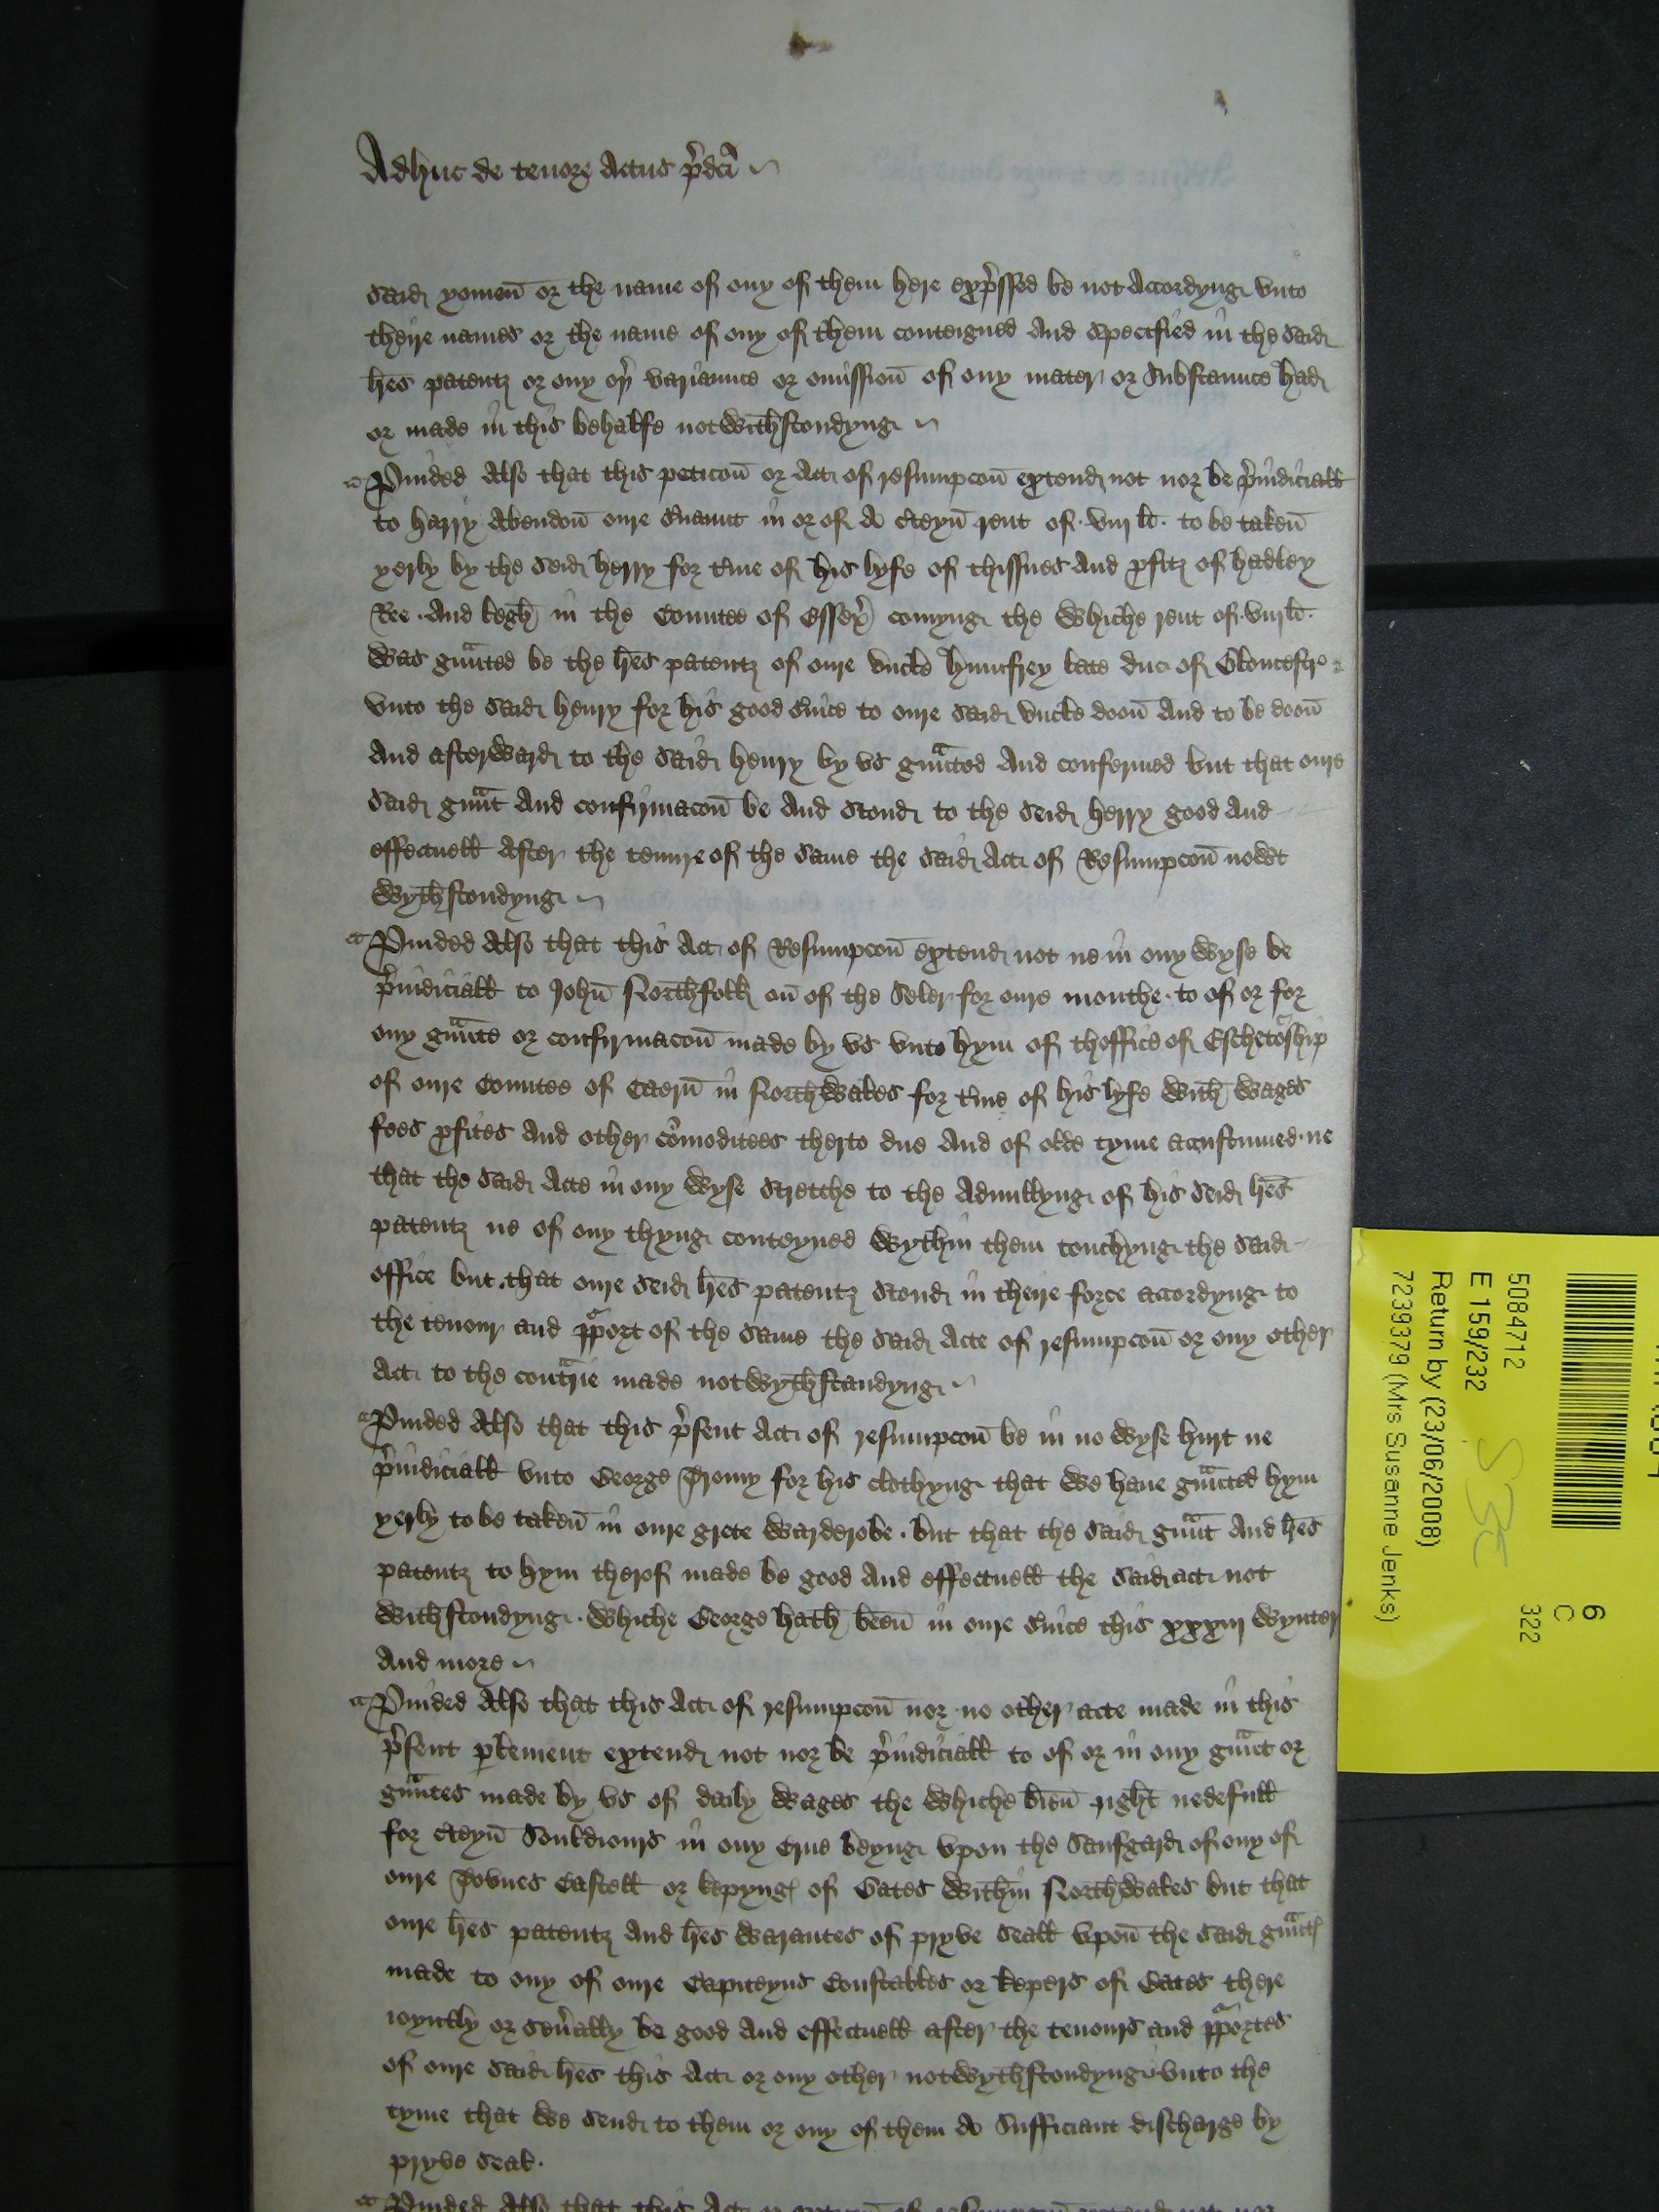 Adhuc de tenore Actus p̱dc̄i
Said yomen̄ or the name of ony of them here exp̱ssed be not Accordyng vnto
theire names or the name of ony of them conteigned And Specified in the Said
l̄res patentz or ony oþ variaunce or omission̄ of ony mater or Substaunce had
or made in this behalfe notwithstondyng
Puided Also that this peticōn or Act of resumpcōn extend not nor be p̱iudiciall
to Harry Abendon̄ oure s̄uaunt in or of A c̄teyn̄ rent of viij li. to be taken̄
yerly by the Seid Herry for t̄me of his lyfe of thissues And p̱fitz of Hadley
Ree And Legh in the Countee of Essex̄ comyng the whiche rent of viij li.
was gūnted be the l̄res patentz of oure vncle Humfrey late duc of Gloucestre
vnto the Said Henry for his good s̄uice to oure Said vncle doon̄ And to be doon̄
And afterward to the Said Henry by vs gūnted And confermed but that oure
Said gūnt And confirmacōn be And Stond to the Seid Herry good And
effectuell After the tenure of the Same the Said Act of Resumpcōn nowt
wythstondyng
Puided Also that this Act of Resumpcōn extend not ne in ony wyse be
p̱iudiciall to John̄ Northfolk on̄ of the Seler for oure mouthe to of or for
ony gūnte or confirmacōn made by vs vnto hym of thoffice of Eschetoship
of oure Countee of Caern̄ in Northwales for t̄me of his lyfe with wages
fees p̱fites And other com̄oditees therto due And of olde tyme acustumed ne
that the Said Acte in ony wyse Stretche to the Adnullyng of his Seid l̄res
patentz ne of ony thyng conteyned wythin them touchyng the Said
office but that oure Seid l̄res patentz Stond in theire force accordyng to
the tenour and pport of the Same the Said Acte of resumpcōn or ony other
Act to the cont̄rie made notwythstandyng
Puided Also that this p̱sent Act of resumpcōn be in no wyse hurt ne
p̱iudiciall vnto George for his clothyng that we haue gūnted hym
yerly to be taken̄ in oure grete warderobe but that the Said gūnt And l̄res
patentz to hym therof made be good And effectuell the Said act not
withstondyng whiche George hath been̄ in oure s̄uice this xxxiij wynter
And more
Puided Also that this Act of resumpcōn nor no other acte made in this
p̱sent p̱lement extend not nor be p̱iudiciall to of or in ony gūnt or
gūntes made by vs of daily wages the whiche bien̄ right nedefull
for c̄teyn̄ Souldiours in ony Crue beyng vpon the Saufgard of ony of
oure Tovnes Castell or kepyng of Gates within Northwales but that
oure l̄res patentz And l̄res warantes of pryve Seall vpon̄ the Said gūnt
made to ony of oure Capiteyns Constables or kepers of Gates there
ioyntly or sēually be good And effectuell after the tenours and pportes
of oure Said l̄res this Act or ony other notwythstondyng vnto the
tyme that we Send to them or ony of them A Sufficiant discharge by
pryve Seal.
Puided Also that this Act
5084712
E 159/232
Return by (23/06/2008)
7239379 (Mrs Susanne Jenks)
6
C
322